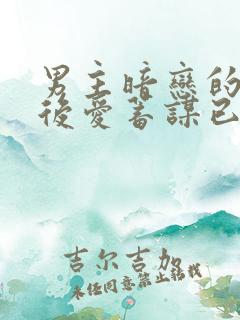 男主暗戀的
後愛蓄謀已
吉尔吉加
未经同意禁止转载